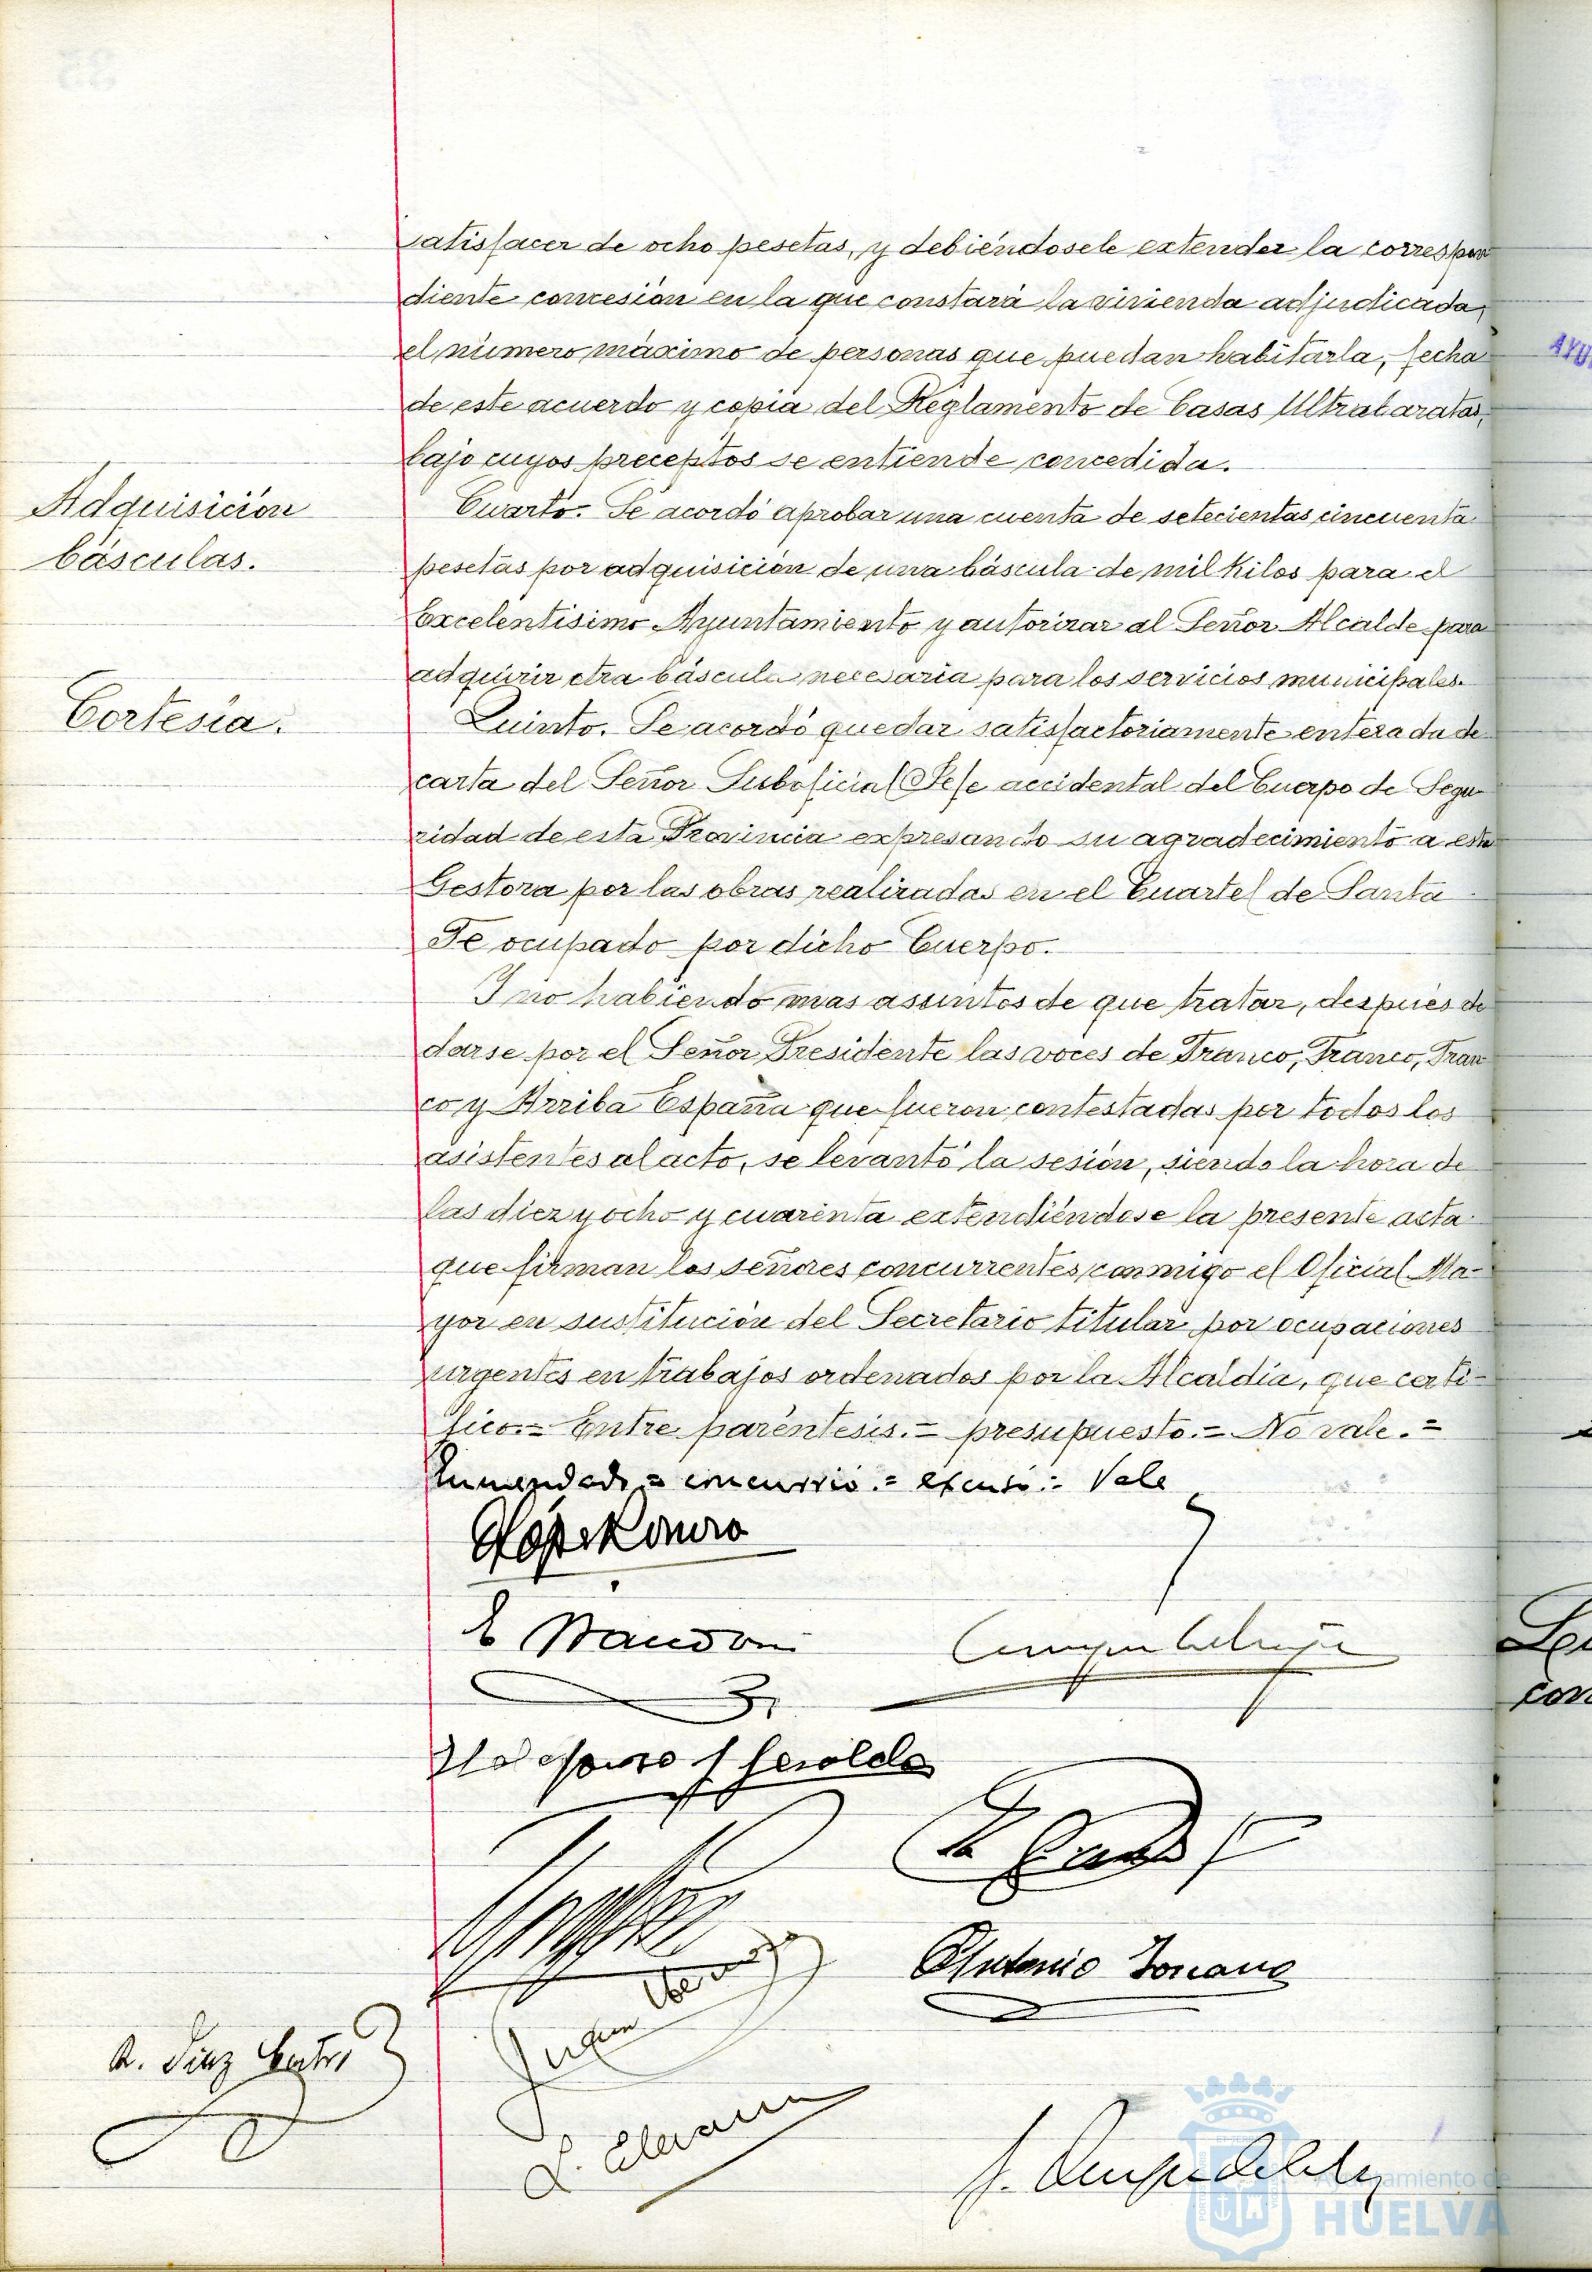 satisfacer de ocho pesetas, y debiéndosele extender la correspon
diente concesión en la que constará la vivienda adjudicada,
el número máximo de personas que puedan habitarla, fecha
de este acuerdo y copia del Reglamento de Casas Ultrabaratas,
bajo cuyos preceptos se entiende concedida.
Adquisición
básculas.
Cuarto. Se acordó aprobar una cuenta de setecientas cincuenta
pesetas por adquisición de una báscula de mil kilos para el
Excelentísimo Ayuntamiento y autorizar al Señor Alcalde para
adquirir otra báscula necesaria para los servicios municipales.
Cortesía.
Quinto. Se acordó quedar satisfactoriamente enterada de
carta del Señor Suboficial Jefe accidental del Cuerpo de Segu
ridad de esta Provincia expresando su agradecimiento a esta
Gestora por las obras realizadas en el Cuartel de Santa
Fe ocupado por dicho Cuerpo.
Y no habiendo mas asuntos de que tratar, después de
darse por el Señor Presidente las voces de Franco, Franco, Fran
co y Arriba España que fueron contestadas por todos los
asistentes al acto, se levantó la sesión, siendo la hora de
las diez y ocho y cuarenta extendiéndose la presente acta
que firman los señores concurrentes conmigo el Oficial Ma-
yor en sustitución del Secretario titular por ocupaciones
urgentes en trabajos ordenados por la Alcaldía, que certi-
fico.= Entre paréntesis.= presupuesto.= No vale.=
Enmendado = concurrió.= excusó.= Vale
E
Antonio
R. Díaz
L.
J.
Ayuntamiento de
HUELVA